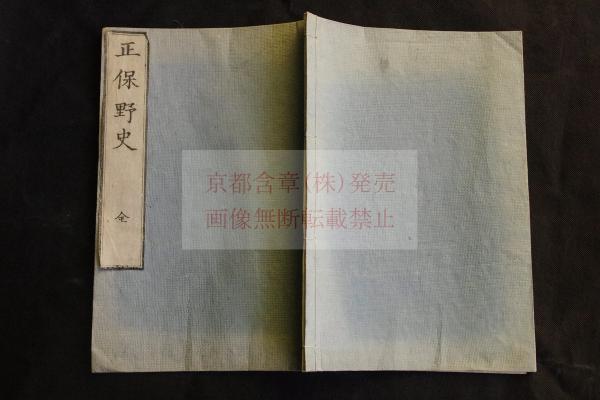 正保野史
全
京都含章(株)発売
画像無断転載禁止